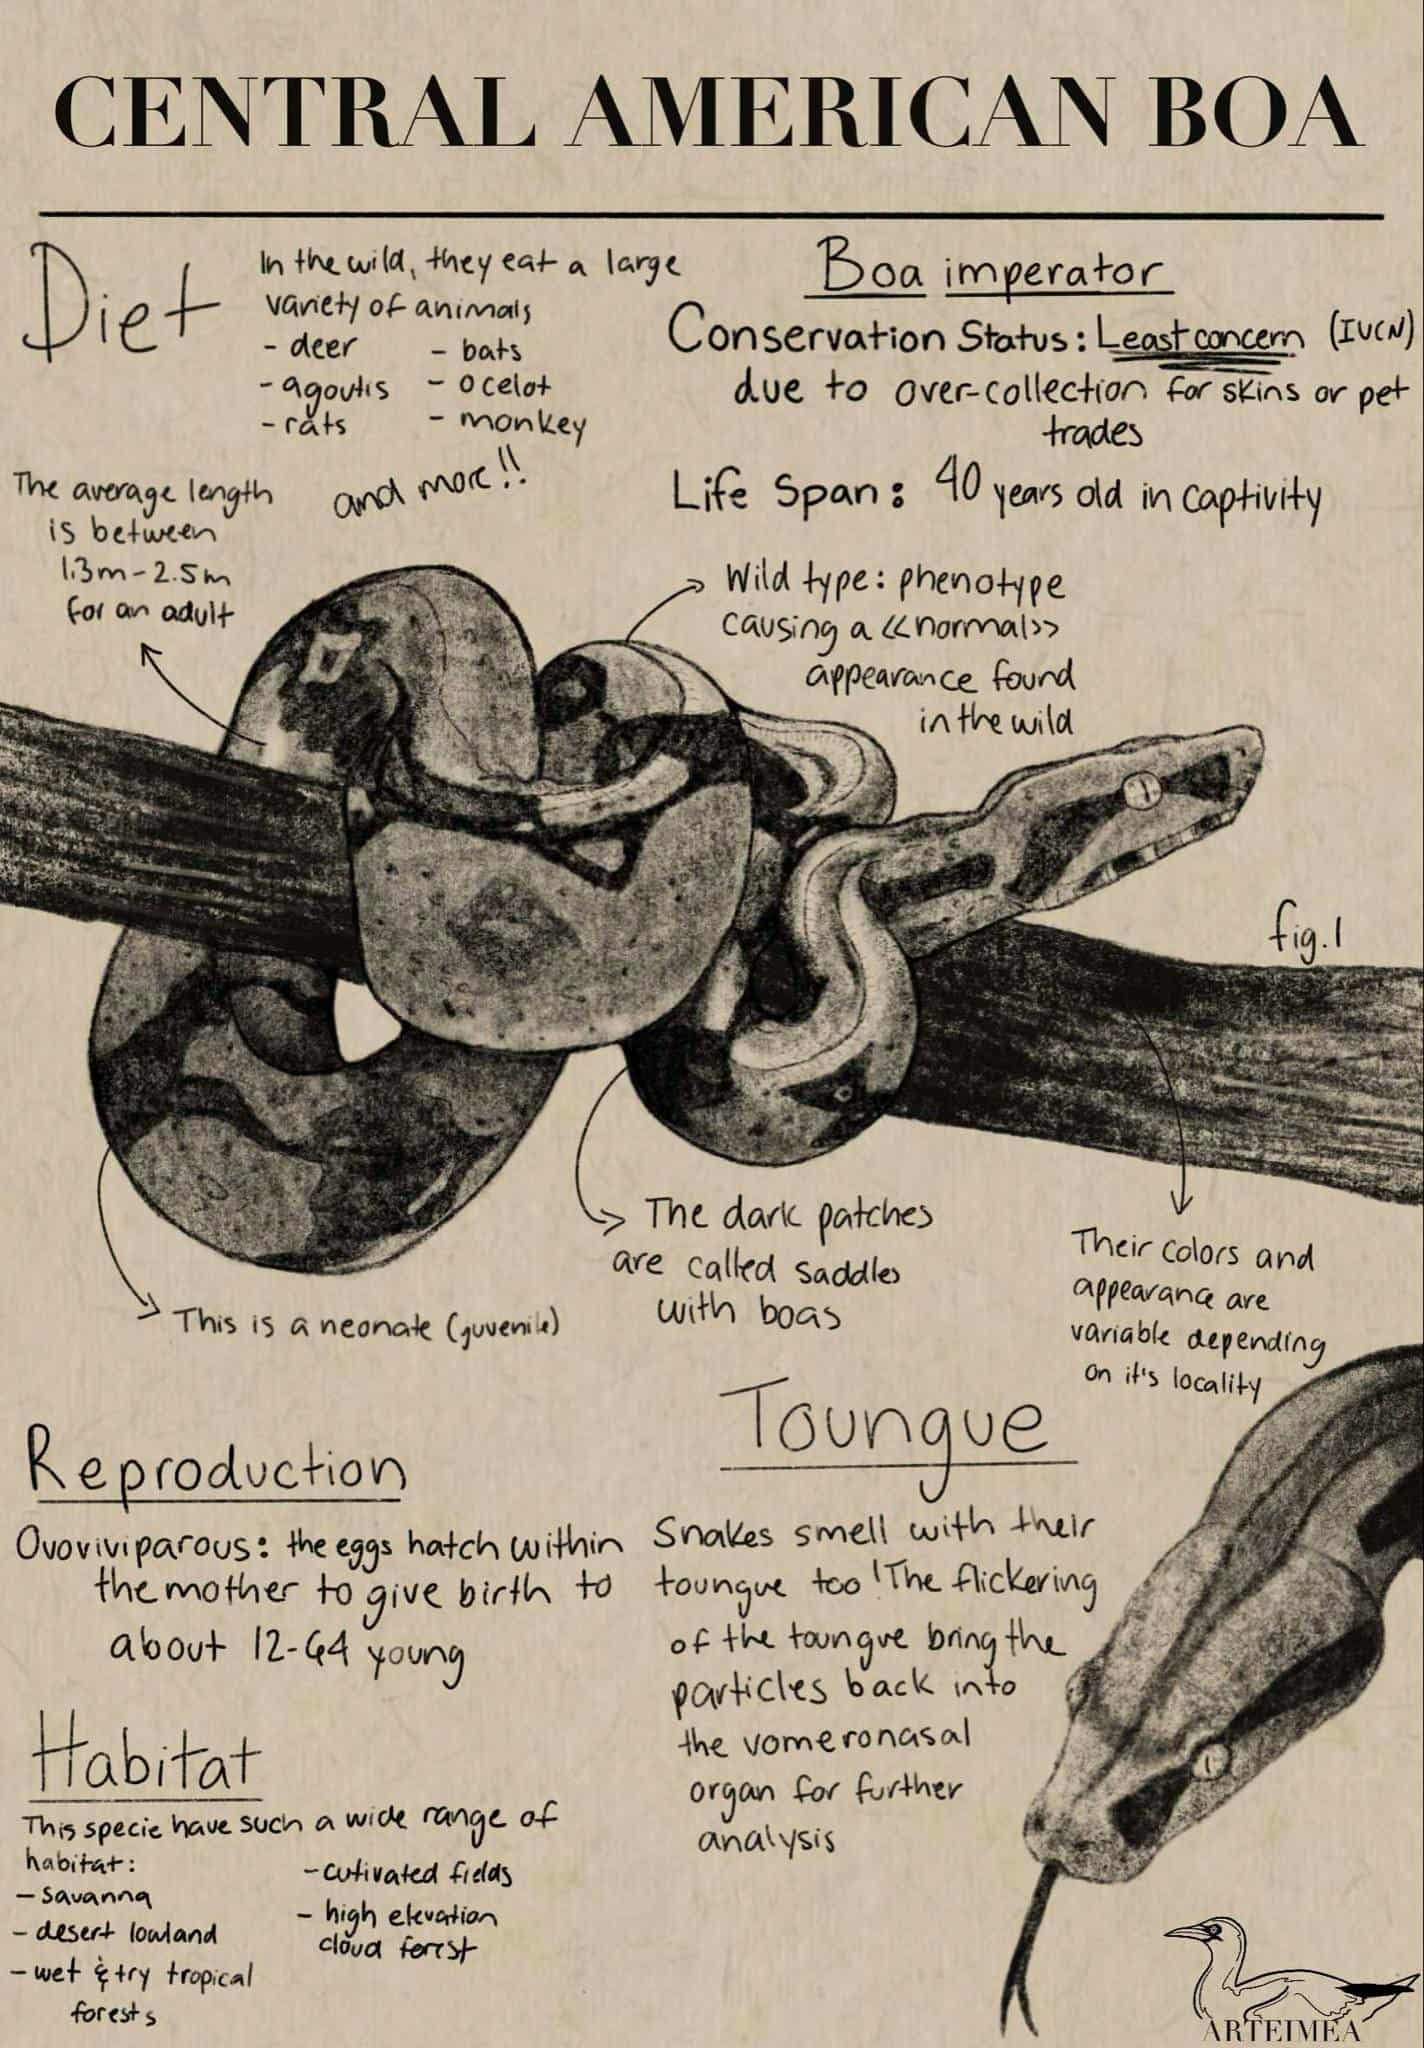 CENTRAL AMERICAN BOA
Diet
In the wild, they eat a large
variety of animals
- deer
- agoutis
- rats
- bats
- ocelot
- monkey
and more!!
Boa imperator
Conservation Status: Least concern (IUCN)
due to over-collection for skins or pet
trades
Life Span: 40 years old in captivity
The average length
is between
1.3m-2.5m
for an adult
Wild type: phenotype
causing a <<normal>>
appearance found
in the wild
fig.1
The dark patches
are called saddles
with boas
Their colors and
appearance are
variable depending
on it's locality
This is a neonate (juvenile)
Reproduction
Ovoviviparous: the eggs hatch within
the mother to give birth to
about 12-64 young
Toungue
Snakes smell with their
toungue too! The flickering
of the toungue bring the
particles back into
the vomeronasal
organ for further
analysis
Habitat
This specie have such a wide range of
habitat:
- savanna
- desert lowland
- wet & try tropical
forests
- cutivated fields
- high elevation
cloud forest
ARTEIMEA